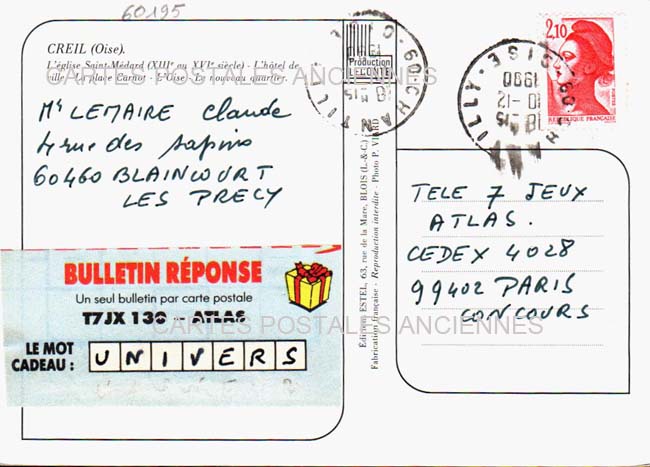 60195
CREIL (Oise).
L'église Saint-Médard (XIIIe au XVIe siècle) - L'hôtel de
ville - La place Carnot - L'Oise - Le nouveau quartier.
CARTES POSTALES ANCIENNES
Mr LEMAIRE Claude
4 rue des sapins
60460 BLAINCOURT
LES PRECY
BULLETIN RÉPONSE
Un seul bulletin par carte postale
T7JX 130 - ATLAS
LE MOT
CADEAU : UNIVERS
CARTES POSTALES ANCIENNES
Production
LECONTE
Éditions ESTEL, 63, rue de la Mare, BLOIS (L.-&-C.)
Fabrication Française - Reproduction interdite - Photo P. VIARD
60-CHANTILLY-OISE
18 H 15
10-12
1990
2,10
REPUBLIQUE FRANÇAISE
TELE 7 JEUX
ATLAS.
CEDEX 4028
99402 PARIS
CONCOURS